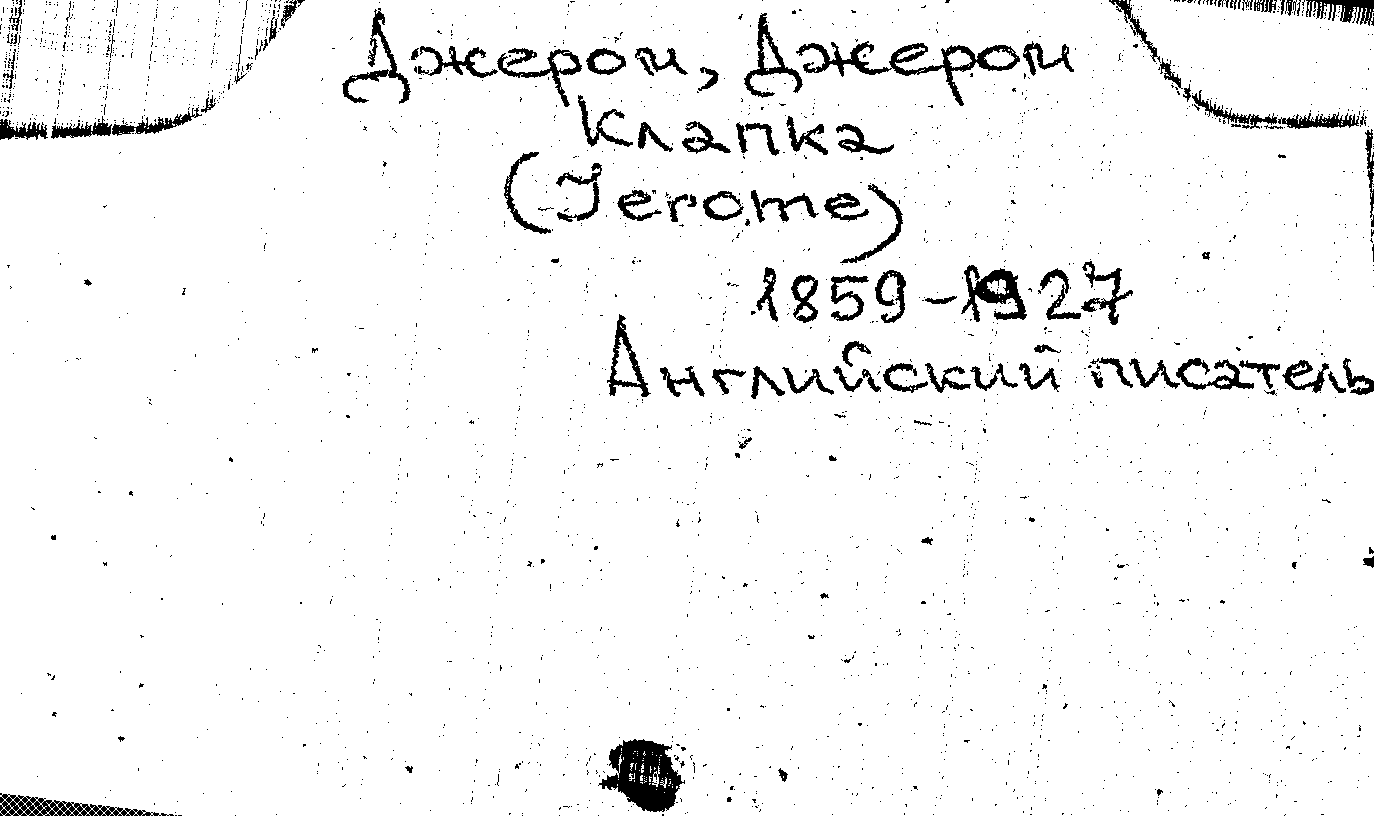 Джером, Джером
Клапка
(Jerome)
1859-1927
Английский писатель